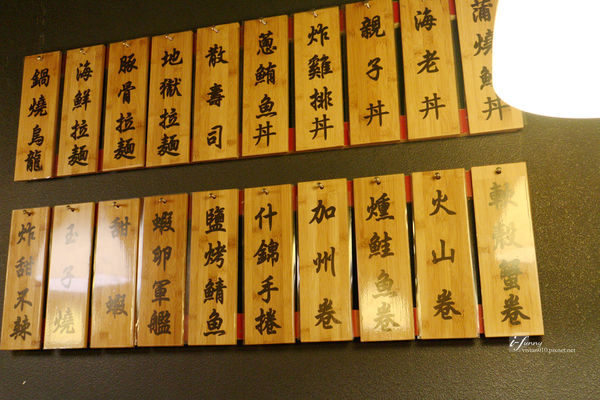 蒲燒鰻丼
海老丼
親子丼
炸雞排丼
蔥鮪魚丼
散壽司
地獄拉麵
豚骨拉麵
海鮮拉麵
鍋燒烏龍
軟殼蟹卷
火山卷
燻鮭魚卷
加州卷
什錦手捲
鹽烤鯖魚
蝦卵軍艦
甜蝦
玉子燒
炸甜不辣
i-funny
vivian010.pixnet.net